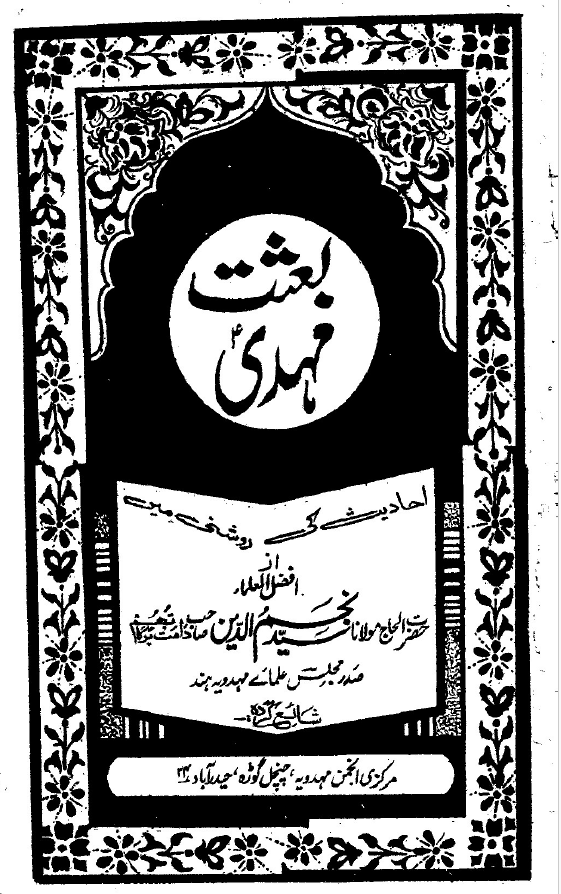 بعثت
مہدیؑ
احادیث کی روشنی میں
از
افضل العلماء
حضرت الحاج مولانا سید نجم الدین صاحب دامت برکاتہم
صدر مجلس علمائے مہدویہ ہند
شائع کردہ
مرکزی انجمن مہدویہ، چنچل گوڑہ، حیدرآباد ۲۴